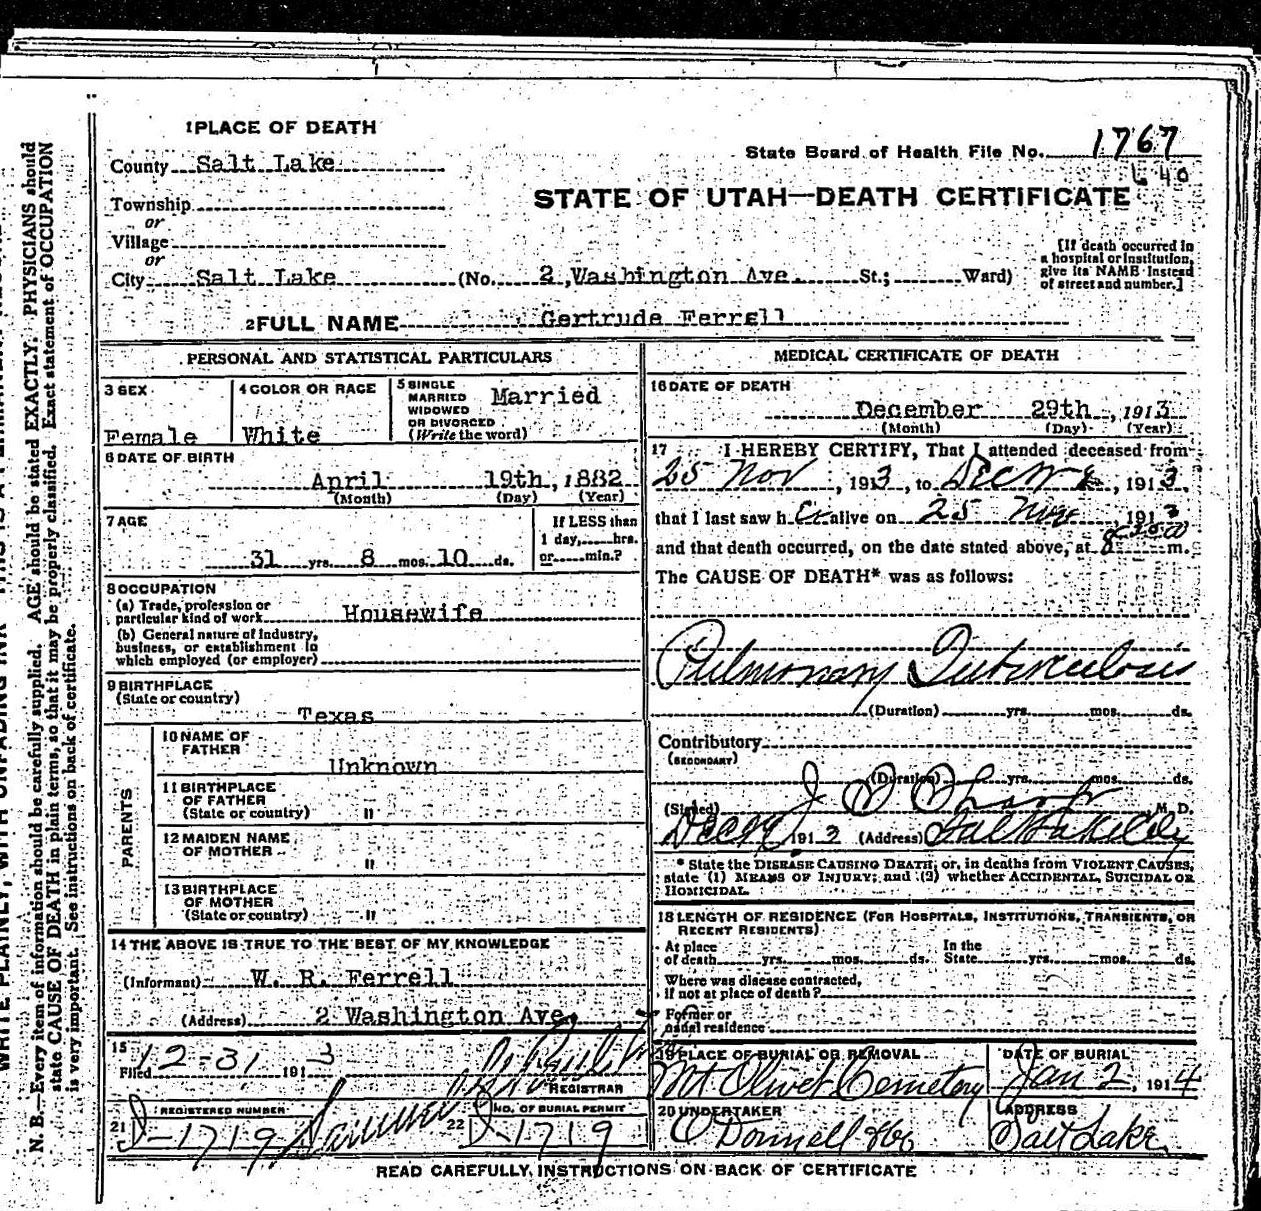 1 PLACE OF DEATH
County Salt Lake
Township
or
Village
or
City Salt Lake (No. 2, Washington Ave. St.; Ward)
State Board of Health File No. 1767
40
STATE OF UTAH—DEATH CERTIFICATE
[If death occurred in
a hospital or institution,
give its NAME instead
of street and number.]
2 FULL NAME Gertrude Ferrell
PERSONAL AND STATISTICAL PARTICULARS
3 SEX
Female
4 COLOR OR RACE
White
5 SINGLE
MARRIED
WIDOWED
OR DIVORCED
(Write the word)
Married
6 DATE OF BIRTH
April 19th, 1882
(Month) (Day) (Year)
7 AGE
31 yrs. 8 mos. 10 ds.
If LESS than
1 day, hrs.
or min.?
8 OCCUPATION
(a) Trade, profession or
particular kind of work Housewife
(b) General nature of Industry,
business, or establishment in
which employed (or employer)
9 BIRTHPLACE
(State or country)
Texas
PARENTS
10 NAME OF
FATHER
Unknown
11 BIRTHPLACE
OF FATHER
(State or country) "
12 MAIDEN NAME
OF MOTHER
"
13 BIRTHPLACE
OF MOTHER
(State or country) "
14 THE ABOVE IS TRUE TO THE BEST OF MY KNOWLEDGE
(Informant) W. R. Ferrell
(Address) 2 Washington Ave.
15
Filed 12-31 1913
REGISTRAR
REGISTERED NUMBER
21 D-1719
NO. OF BURIAL PERMIT
22 D-1719
MEDICAL CERTIFICATE OF DEATH
16 DATE OF DEATH
December 29th, 1913
(Month) (Day) (Year)
17 I HEREBY CERTIFY, That I attended deceased from
25 Nov, 1913, to Dec, 1913,
that I last saw her alive on 25 Nov 1913
and that death occurred, on the date stated above, at m.
The CAUSE OF DEATH* was as follows:
Pulmonary Tuberculosis
(Duration) yrs. mos. ds.
Contributory
(SECONDARY)
(Duration) yrs. mos. ds.
(Signed) J M. D.
Dec 1913 (Address) Salt Lake City
* State the DISEASE CAUSING DEATH, or, in deaths from VIOLENT CAUSES,
state (1) MEANS OF INJURY; and (2) whether ACCIDENTAL, SUICIDAL OR
HOMICIDAL.
18 LENGTH OF RESIDENCE (FOR HOSPITALS, INSTITUTIONS, TRANSIENTS, OR
RECENT RESIDENTS)
At place
of death yrs. mos. ds.
In the
State yrs. mos. ds.
Where was disease contracted,
if not at place of death?
Former or
usual residence
19 PLACE OF BURIAL OR REMOVAL
Mt Olivet Cemetery
DATE OF BURIAL
Jan 2, 1914
20 UNDERTAKER
O'Donnell & Co
ADDRESS
Salt Lake
READ CAREFULLY, INSTRUCTIONS ON BACK OF CERTIFICATE
N. B.—Every item of information should be carefully supplied. AGE should be stated EXACTLY. PHYSICIANS should
state CAUSE OF DEATH in plain terms, so that it may be properly classified. Exact statement of OCCUPATION
is very important. See instructions on back of certificate.